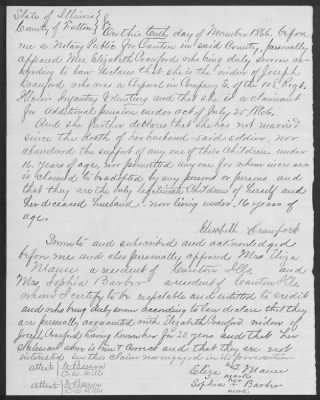 State of Illinois }
County of Fulton } On this tenth day of November 1866, before
me a Notary Public for Canton in said County, personally
appeared Mrs. Elizabeth Crawford who being duly sworn ac-
cording to law declares that she is the widow of Joseph
Crawford who was a Corporal in Company E of the 103d Reg't
Illinois Infantry Volunteers and that she is a claimant
for additional pension under act of July 25, 1866.
And she further declares that she has not married
since the death of her husband said soldier, nor
abandoned the support of any one of their Children under
16 years of age, nor permitted any one for whom increase
is claimed to be adopted by any person or persons and
that they are the only legitimate Children of herself and
her deceased husband now living under 16 years of
age.
Elizabeth Crawford
Sworn to and subscribed and acknowledged
before me and also personally appeared Mrs Eliza
Maus a resident of Canton Ills and
Mrs Sophia Barbor a resident of Canton Ills
whom I certify to be respectable and entitled to credit
and who being duly sworn according to law declare that they
are personally acquainted with Elizabeth Crawford widow of
Joseph Crawford having known her for 20 years and that her
Statement above is true & correct and that they are not
interested in this claim nor engaged in its prosecution
attest
Eliza her mark
attest
Sophia her Barbor
mark